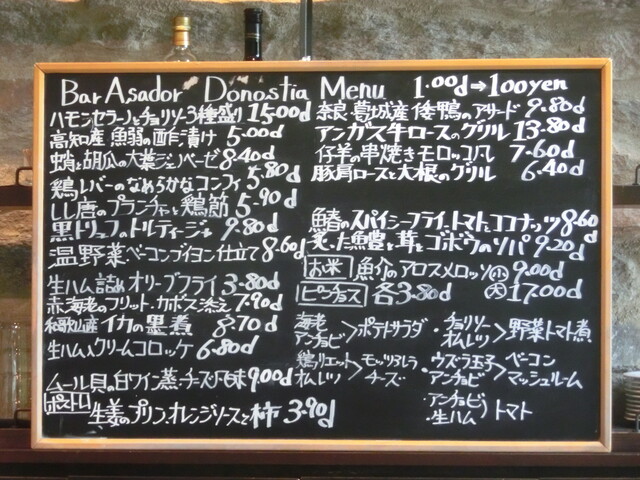 Bar Asador Donostia Menu 1.00d→100yen
ハモンセラーノとチョリソー3種盛り 15.00d
高知産 魚弱の酢漬け 5.00d
蛸と胡瓜の大葉ジェノベーゼ 8.40d
鶏レバーのなめらかなコンフィ 5.80d
しし唐のプランチャと鶏節 5.90d
黒トリュフのトルティージャ 9.80d
温野菜ベーコンブイヨン仕立て 8.60d
生ハム詰めオリーブフライ 3.80d
赤海老のフリット・カボス添え 7.90d
和歌山産 イカの墨煮 8.70d
生ハム入クリームコロッケ 6.80d
ムール貝の白ワイン蒸・チーズ風味 9.00d
ポストレ
生姜のプリン、オレンジソースと柿 3.90d
奈良・葛城産 倭鴨のアサード 9.80d
アンガス牛ロースのグリル 13.80d
仔羊の串焼きモロッコ風 7.60d
豚肩ロースと大根のグリル 6.40d
鰆のスパイシーフライ、トマトとココナッツ 8.60
煮た魚醬と茸とゴボウのソパ 9.20d
お米 魚介のアロスメロッソ 小 9.00d
大 17.00d
ピンチョス 各3.80d
海老 アンチョビ >ポテトサラダ ・チョリソー オムレツ >野菜トマト煮
鶏リエット オムレツ >モッツァレラ チーズ ・ウズラ玉子 アンチョビ >ベーコン マッシュルーム
・アンチョビ ・生ハム )トマト